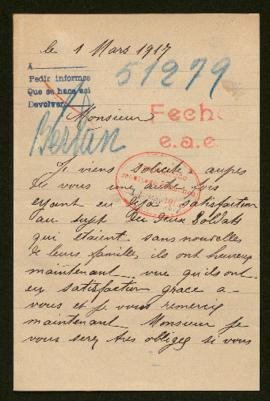 le 1 Mars 1917
51279
A
Pedir informes
Que se haga así
Devolver
Monsieur
Fecha
e.a.e.
Bertan
Je viens solicité aupes
de vous une autre fois
eyant eu déja satisfaction
au sujet des deux Soldats
qui étaient sans nouvelles
de leurs famille, ils ont heureux
maintenant vue qu'ils ont
eu satisfaction grace a
vous et je vous remercie
maintenant Monsieur je
vous serez tres obligez si vous